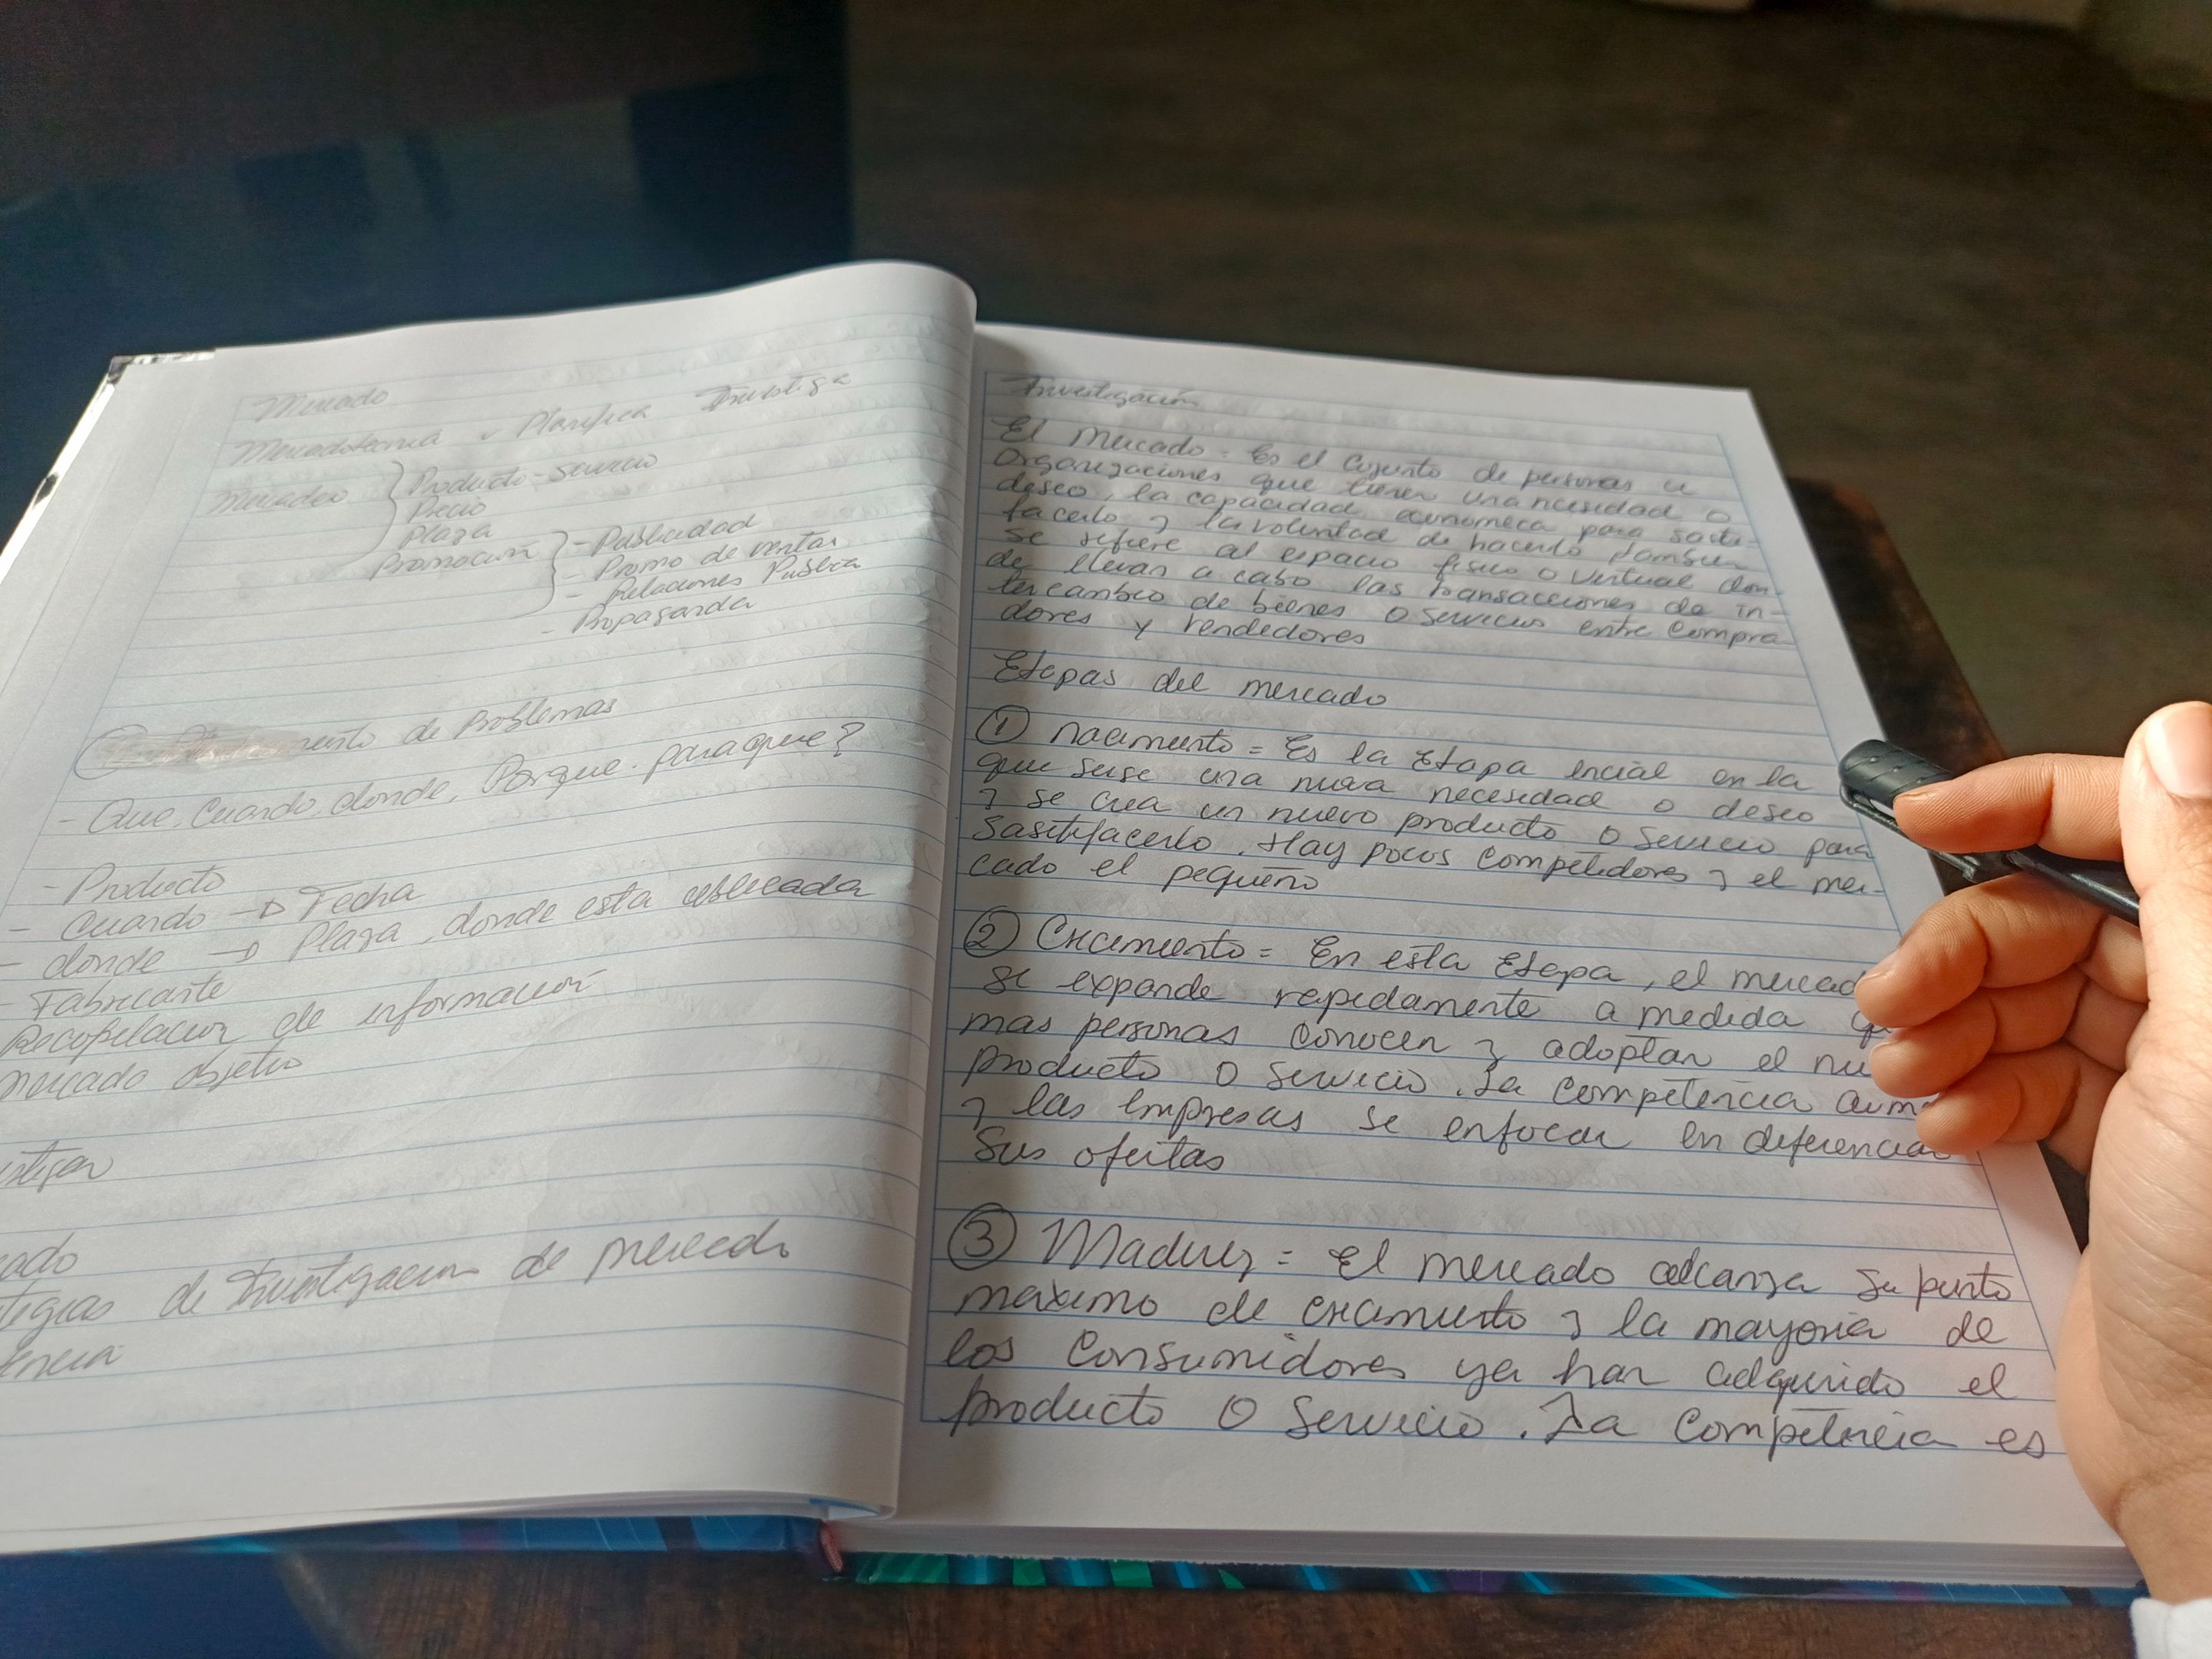 Mercado
Mercadotecnia Planifica Investiga
Mercadeo Producto - servicio
Precio
Plaza
Promoción - Publicidad
- Promo de ventas
- Relaciones Publica
- Propaganda
de Problemas
- Que, Cuando, donde, Porque. para que?
- Producto
- Cuando → Fecha
- donde → Plaza, donde esta ubicada
- Fabricante
Recopilacion de informacion
mercado objetivo
de Investigacion de mercado
Investigación
El Mercado = Es el Cojunto de personas u
Organizaciones que tienen una nesidad o
deseo, la capacidad economica para satis-
facerlo y la voluntad de hacerlo tambien
se refiere al espacio fisico o virtual don-
de llevan a cabo las transacciones de in-
tercambio de bienes o servicios entre compra
dores y vendedores
Etapas del mercado
① nacimiento = Es la Etapa incial en la
que surge una nueva necesidad o deseo
y se crea un nuevo producto o servicio para
Sastifacerlo. Hay pocos competidores y el mer-
cado el pequeño
② Crecimiento = En esta Etapa, el mercad
se expande rapidamente a medida
mas personas conocen y adoptan el
producto o servicio. La competencia
y las empresas se enfocan en diferenciar
Sus ofertas
③ Madurez = El mercado alcanza su punto
maximo de crecimiento y la mayoria de
los Consumidores ya han adquirido el
producto o servicio. La competencia es